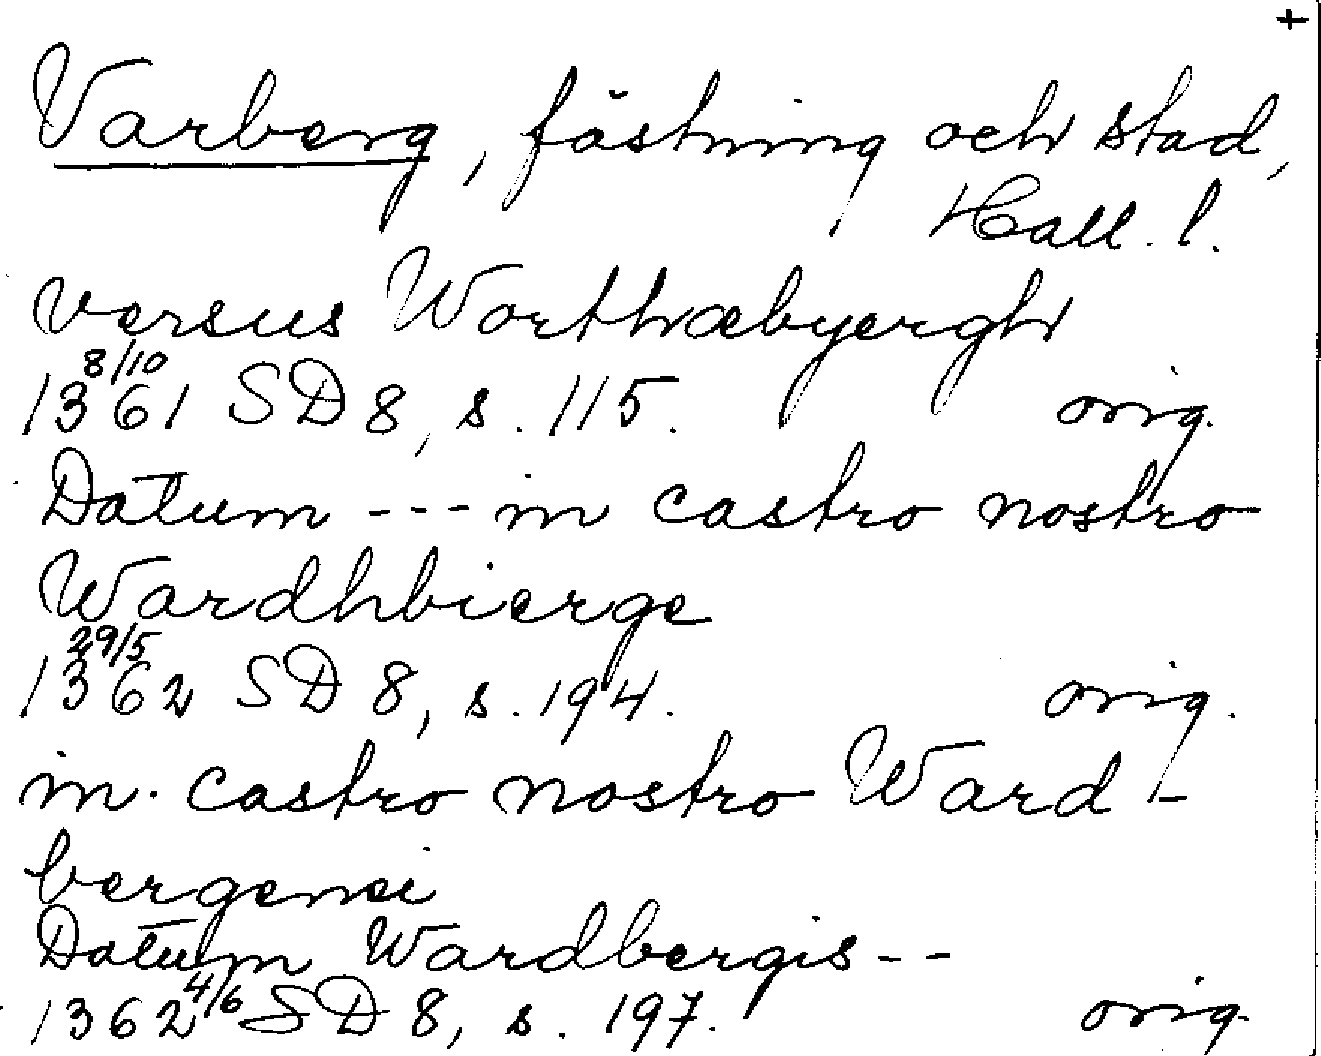 +
Varberg, fästning och stad,
Hall. l.
versus Worthæbyergh
1361 8/10 SD 8, s. 115. orig.
Datum --- in castro nostro
Wardhbierge
1362 29/5 SD 8, s. 194. orig.
in castro nostro Ward-
bergensi
Datum Wardbergis--
1362 4/6 SD 8, s. 197. orig.